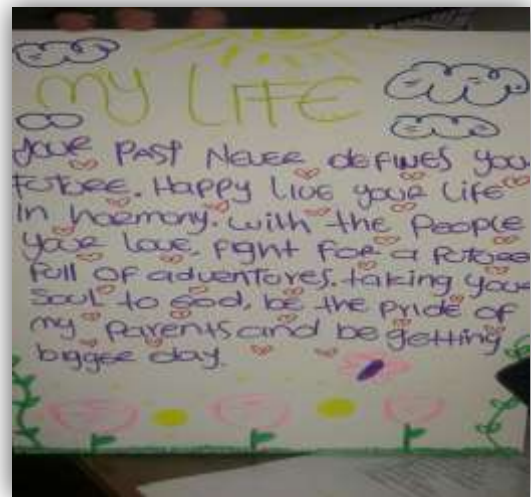 MY LIFE
Your PAST Never defines you
Future. Happy Live your Life
In harmony. with the People
your love. fight for a future
full of adventures. taking your
Soul to God, be the pride of
my Parents and be getting
bigger day.